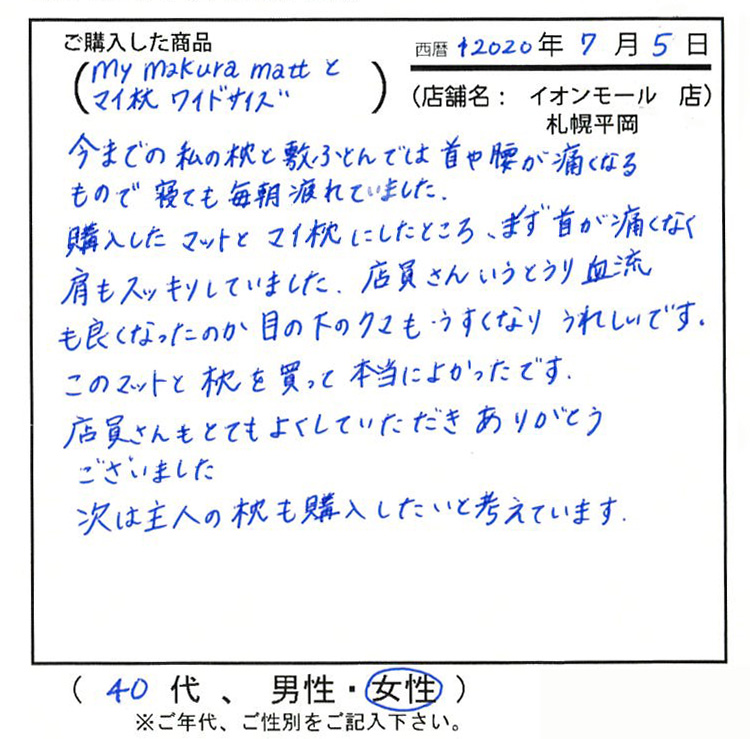 ご購入した商品
西暦 2020年 7月 5日
(my makura matt と
マイ枕 ワイドサイズ)
(店舗名： イオンモール 店)
札幌平岡
今までの私の枕と敷ふとんでは首や腰が痛くなる
もので寝ても毎朝疲れていました.
購入したマットとマイ枕にしたところ、まず首が痛くなく
肩もスッキリしていました. 店員さんいうとうり血流
も良くなったのか目の下のクマもうすくなりうれしいです.
このマットと枕を買って本当によかったです.
店員さんもとてもよくしていただきありがとう
ございました
次は主人の枕も購入したいと考えています.
( 40代、男性・女性 )
※ご年代、ご性別をご記入下さい。